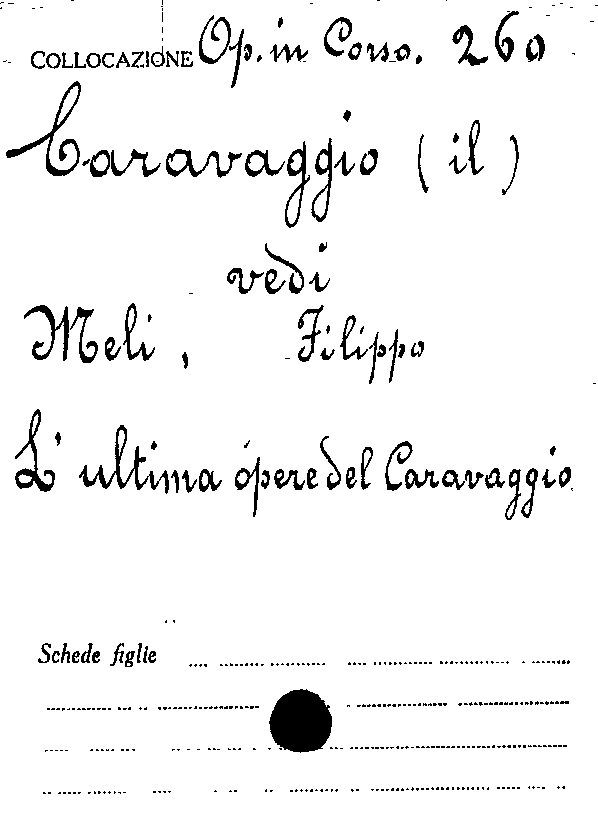 COLLOCAZIONE Op. in Corso. 260
Caravaggio (il)
vedi
Meli, Filippo
L'ultima opere del Caravaggio.
Schede figlie